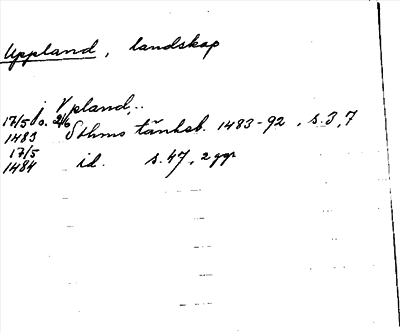 Uppland, landskap
j Vpland..
17/5 o. 2/6 1483 Sthms tänkeb. 1483-92, s. 3, 7
17/5 1484 id. s. 47, 2 ggr